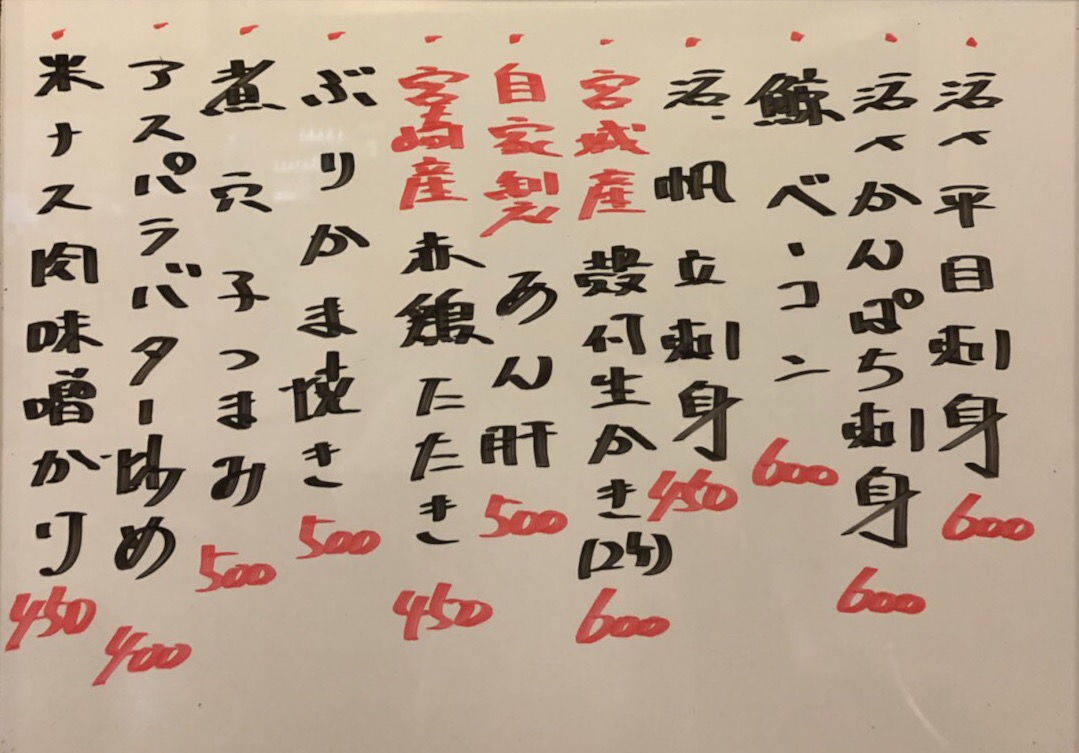 ・活〆平目刺身 600
・活〆かんぱち刺身 600
・鯨ベーコン 600
・活帆立刺身 450
・宮城産 殻付生かき(2ケ) 600
・自家製 あん肝 500
・宮崎産 赤鶏たたき 450
・ぶりかま焼き 500
・煮穴子つまみ 500
・アスパラバター炒め 400
・米ナス肉味噌がけ 450